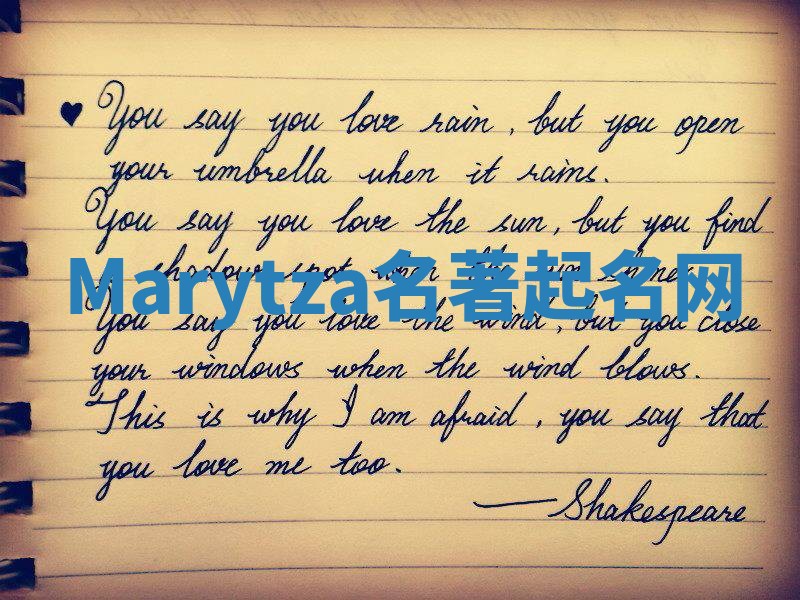 ♥ You say you love rain, but you open
your umbrella when it rains.
You say you love the sun, but you find
shadow spot when the sun shines.
Marytza名著起名网
You say you love the wind, but you close
your windows when the wind blows.
This is why I am afraid, you say that
you love me too.
— Shakespeare